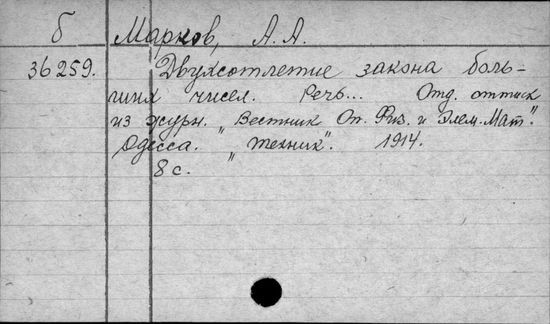 б Марков, А. А.
36259. Двухсотлетие закона боль-
ших чисел. Речь... Отд. оттиск
из журн. „Вестник Оп. Физ. и Элем. Мат."
Одесса. „Техник". 1914.
8 с.